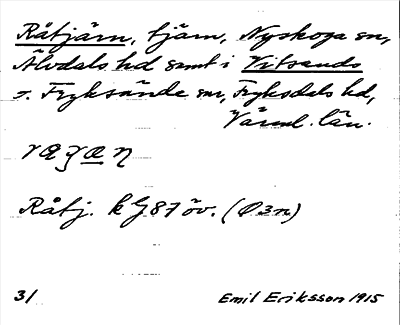 Råtjärn, tjärn, Nyskoga sn,
Älvdals hd samt i Vitsands
o. Fryksände snr, Fryksdals hd,
Värml. län.
Råtj. k G87 öv. (Ö3n)
31 Emil Eriksson 1915